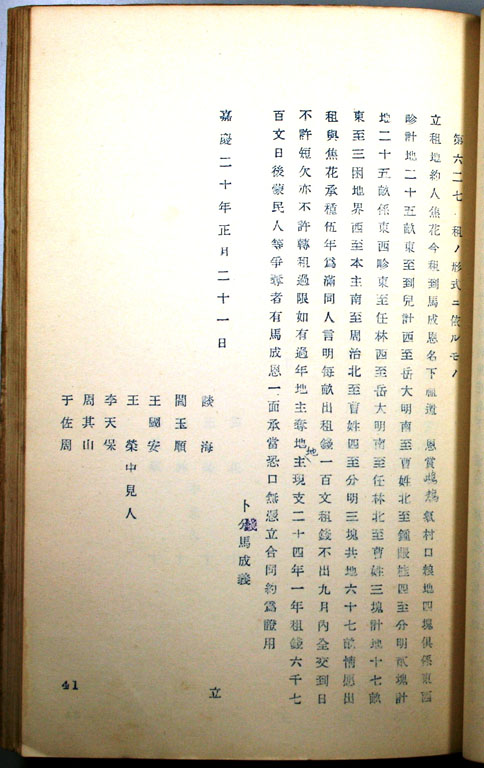 第六二七、租ノ形式ニ依ルモノ
立租地約人焦花今租到馬成恩名下祖道 恩賞村口粮地四塊俱係東西
畛計地二十五畝東至到兒計西至岳大明南至曹姓北至四至分明貳塊計
地二十五畝係東西畛東至任林西至岳大明南至任林北至曹姓三塊計地十七畝
東至三困地界西至本主南至周治北至曹姓四至分明三塊共地六十七畝情愿出
租與焦花承種伍年爲滿同人言明每畝出租錢一百文租錢不出九月內全交到日
不許短欠亦不許轉租過限如有過年地主奪地主現支二十四年一年租錢六千七
地
百文日後蒙民人等爭奪者有馬成恩一面承當恐口無憑立合同約爲證用
卜馬成義
嘉慶二十年正月二十一日
立
談海
閻玉順
王國安
王榮中見人
李天保
周其山
于佐周
41